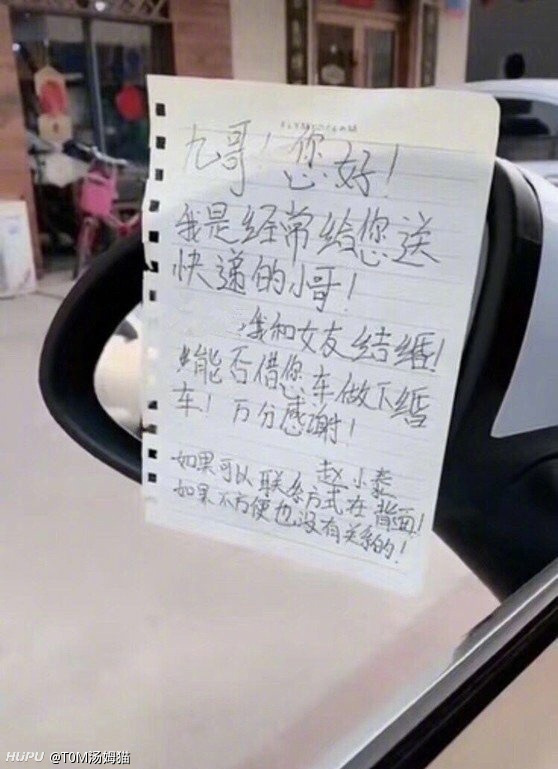 九哥！您好！
我是经常给您送
快递的小哥！
我和女友结婚！
能否借您车做下婚
车！万分感谢！
赵小泰
如果可以联系方式在背面！
如果不方便也没有关系的！
HUPU @T0M汤姆猫